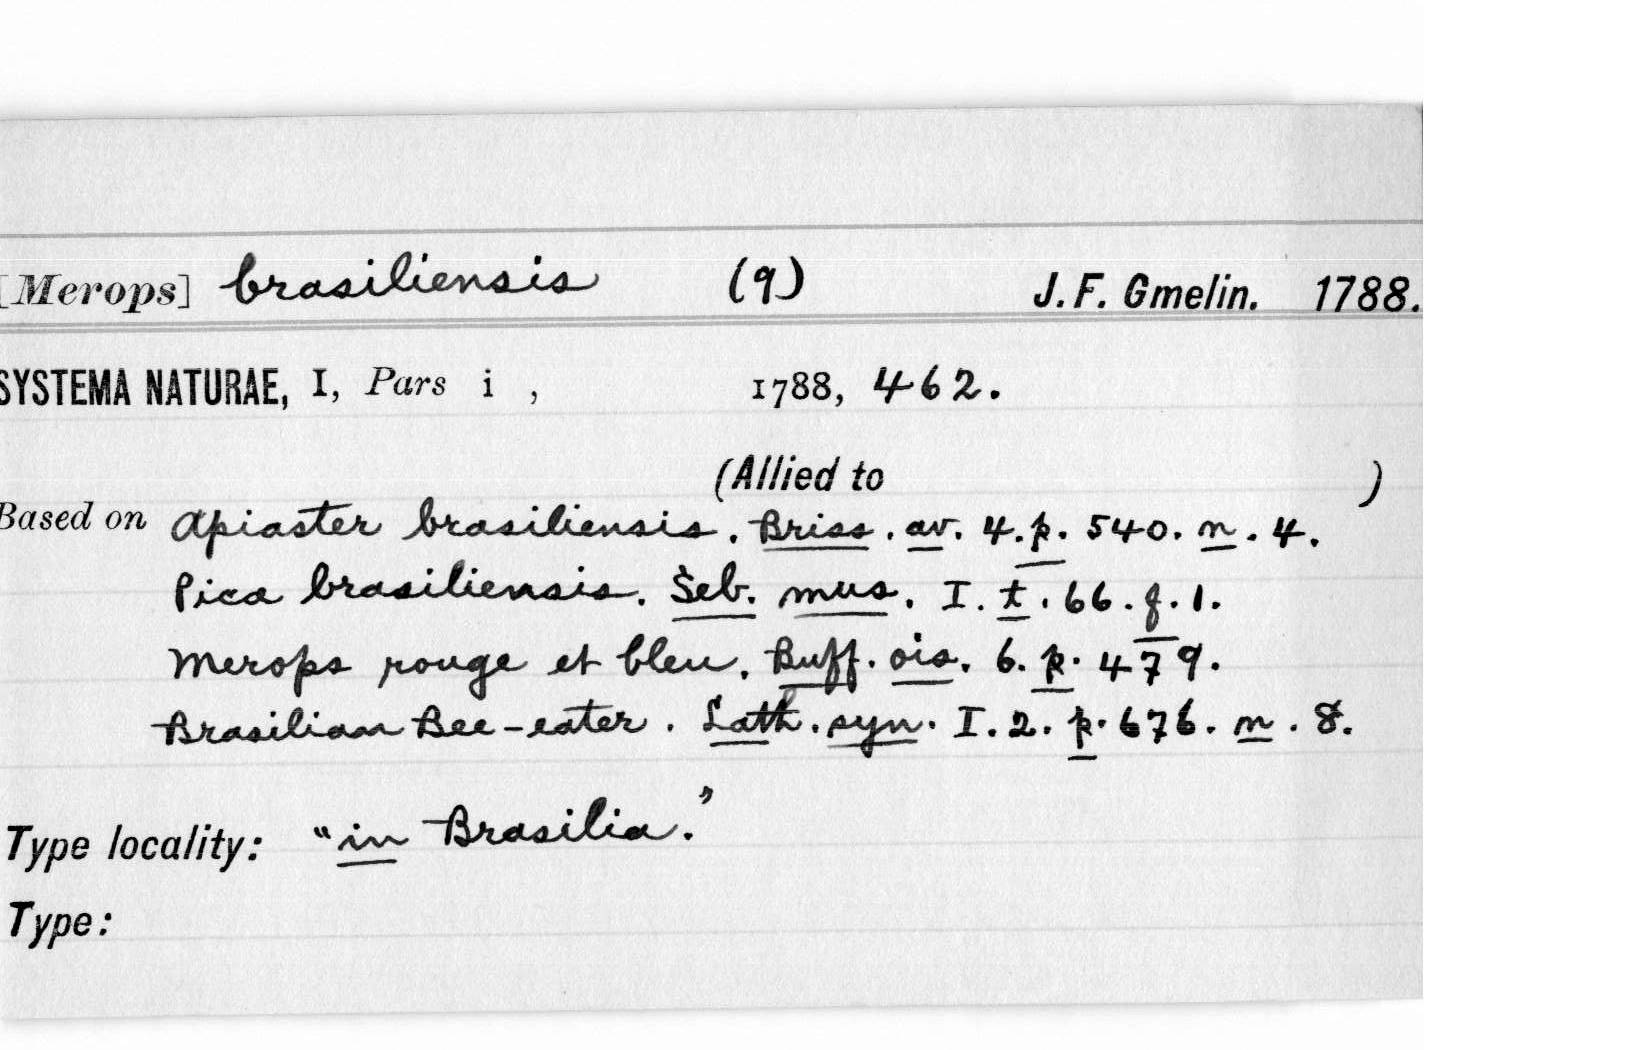 [Merops] brasiliensis (9) J. F. Gmelin. 1788.
SYSTEMA NATURAE, I, Pars i , 1788, 462.
(Allied to )
Based on Apiaster brasiliensis. Briss. av. 4. p. 540. n. 4.
Pica brasiliensis. Seb. mus. I. t. 66. f. 1.
Merops rouge et bleu. Buff. ois. 6. p. 479.
Brasilian Bee-eater. Lath. syn. I. 2. p. 676. n. 8.
Type locality: "in Brasilia."
Type: